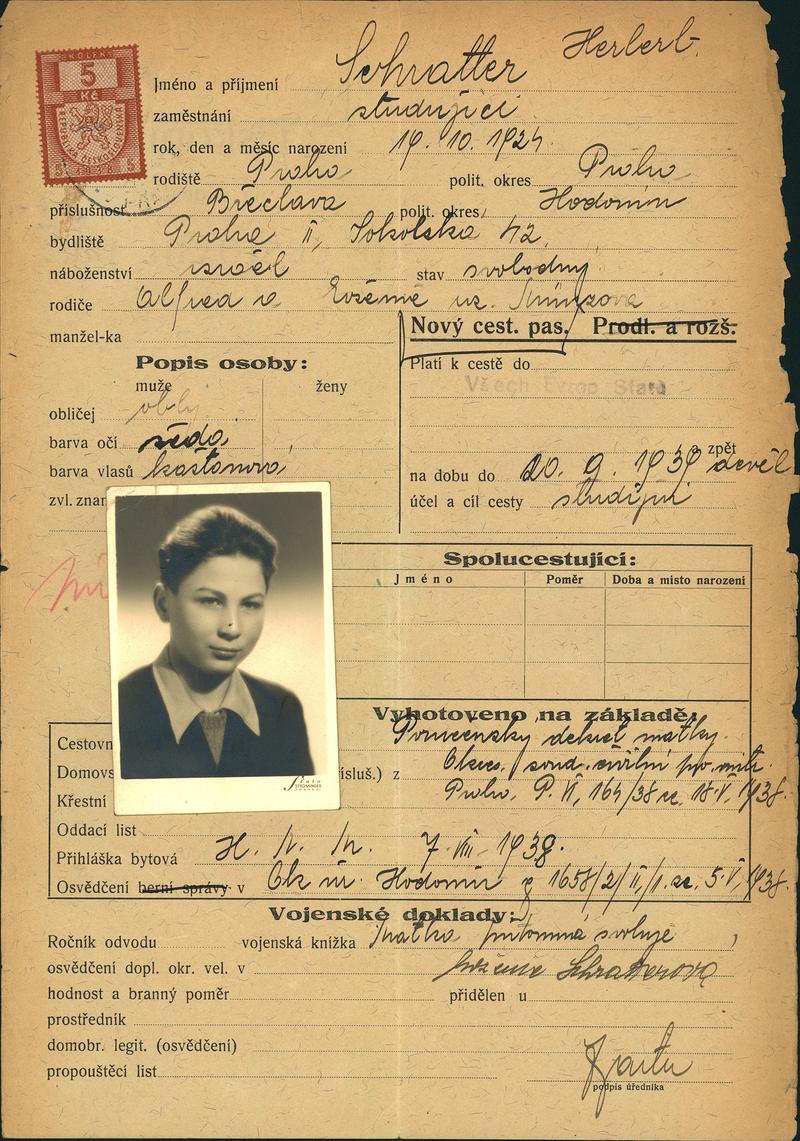 KOLEK
5
Kč
REPUBLIKA ČESKOSLOVENSKÁ
Jméno a příjmení Schratter Herbert
zaměstnání studující
rok, den a měsíc narození 19. 10. 1924
rodiště Praha polit. okres Praha
příslušnost Břeclava polit. okres Hodonín
bydliště Praha II, Sokolská 42
náboženství israel stav svobodný
rodiče Alfred a Evženie roz.
manžel-ka
Nový cest. pas. Prodl. a rozš.
Popis osoby:
muže ženy
Platí k cestě do
Všech Evrop Států
obličej oblý
barva očí šedá
barva vlasů kaštanová
zvl. znam
a zpět
na dobu do 20. 9. 1939
účel a cíl cesty studijní
Spolucestující:
Jméno Poměr Doba a místo narození
Vyhotoveno na základě:
Cestovn
Poručensky dekret matky.
Domovs (přísluš.) z Okres. soud. civilní pro
Křestní Praha, P. VI, 164/38 ze 18.V. 1938.
Oddací list
Přihláška bytová 7. VIII. 1938.
Osvědčení berní správy v Ok. úř. Hodonín 1658/2/II/1. ze 5.V. 1938.
Foto
STROMINGER
Vojenské doklady:
Ročník odvodu vojenská knížka Matka přítomná svoluje
osvědčení dopl. okr. vel. v Evženie Schratterová
hodnost a branný poměr přidělen u
prostředník
domobr. legit. (osvědčení)
propouštěcí list
podpis úředníka